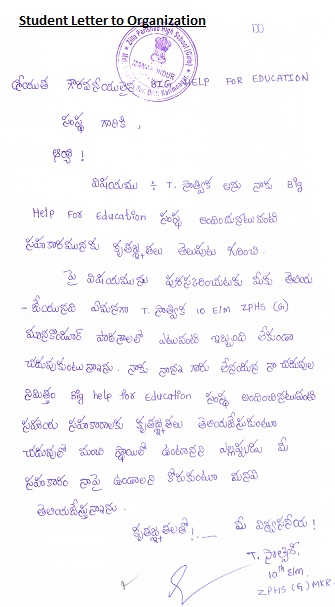 Student Letter to Organization
శ్రీయుత గౌరవనీయులైన BIG HELP FOR EDUCATION
సంస్థ గారికి,
ఆర్యా!
విషయము ÷ T. సాత్విక అను నాకు Big
Help For Education సంస్థ అందించునటువంటి
సహకారమునకు కృతజ్ఞతలు తెలుపుట గురించి.
పై విషయమును పురస్కరించుకుని మీకు తెలియ
- చేయునది ఏమనగా T. సాత్విక 10 E/M ZPHS (G)
మానకొండూర్ పాఠశాలలో ఎటువంటి ఇబ్బంది లేకుండా
చదువుకుంటున్నాను. నాకు నాన్న గారు లేనందున నా చదువుల
నిమిత్తం Big help for Education సంస్థ అందించినటువంటి
సహాయ సహకారాలకు కృతజ్ఞతలు తెలియజేసుకుంటూ
చదువులో మంచి స్థాయిలో ఉంటానని ఎల్లప్పుడు మీ
సహకారం నాపై ఉండాలని కోరుకుంటూ మనవి
తెలియజేస్తున్నాను.
కృతజ్ఞతలతో! మీ విశ్వసనీయ!
T. సాత్విక,
10th E/m,
ZPHS (G) MKR.